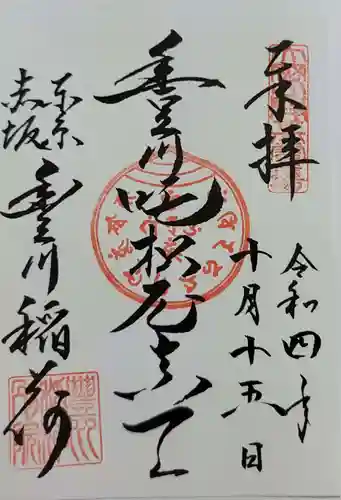 奉拝
令和四年
十月十五日
豊川吒枳尼真天
東京
赤坂
豊川稲荷